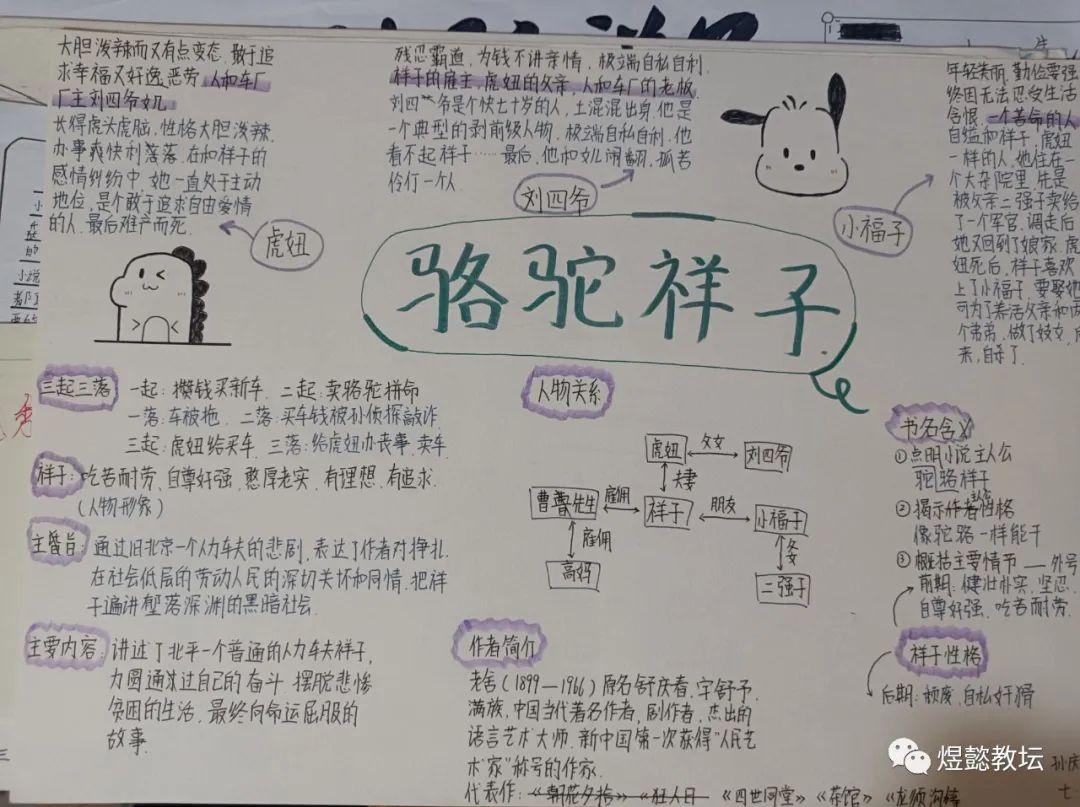 大胆泼辣而又有点变态,敢于追
求幸福又好逸恶劳,人和车厂
厂主刘四爷女儿
长得虎头虎脑,性格大胆泼辣,
办事爽快利落,在和祥子的
感情纠纷中,她一直处于主动
地位,是个敢于追求自由爱情
的人,最后难产而死.
虎妞
残忍霸道,为钱不讲亲情,极端自私自利.
祥子的雇主,虎妞的父亲,人和车厂的老板.
刘四爷是个快七十岁的人,土混混出身,他是
一个典型的剥削级人物,极端自私自利.他
看不起祥子……最后,他和女儿闹翻,孤苦
伶仃一个人.
刘四爷
小福子
年轻美丽,勤俭要强
终因无法忍受生活
含恨,一个苦命的人
自缢和祥子,虎妞
一样的人,她住在一
个大杂院里,先是
被父亲二强子卖给
了一个军官,调走后
她又回到了娘家,虎
妞死后,祥子喜欢
上了小福子,要娶她
可为了养活父亲和两
个弟弟,做了妓女,后
来,自杀了.
骆驼祥子
三起三落
一起:攒钱买新车. 二起:卖骆驼拼命
一落:车被拖. 二落:买车钱被孙侦探敲诈.
三起:虎妞给买车. 三落:给虎妞办丧事,卖车.
祥子:吃苦耐劳,自尊好强,憨厚老实,有理想,有追求.
(人物形象)
主旨:通过旧北京一个人力车夫的悲剧,表达了作者对挣扎
在社会低层的劳动人民的深切关怀和同情,把祥
子逼进堕落深渊的黑暗社会.
主要内容:讲述了北平一个普通的人力车夫祥子,
力图通过自己的奋斗,摆脱悲惨
贫困的生活,最终向命运屈服的
故事.
人物关系
虎妞
父女
刘四爷
夫妻
曹先生
雇佣
祥子
朋友
小福子
雇佣
父女
高妈
二强子
作者简介
老舍(1899—1966)原名舒庆春,字舒予,
满族,中国当代著名作者,剧作者,杰出的
语言艺术大师,新中国第一次获得“人民艺
术家”称号的作家.
代表作:《朝花夕拾》《狂人日 《四世同堂》《茶馆》《龙须沟
书名含义
①点明小说主人公
驼骆祥子
②揭示作者性格
像驼骆一样能干
③概括主要情节——外号
前期:健壮朴实,坚忍,
自尊好强,吃苦耐劳.
祥子性格
后期:颓废,自私奸滑
煜懿教坛